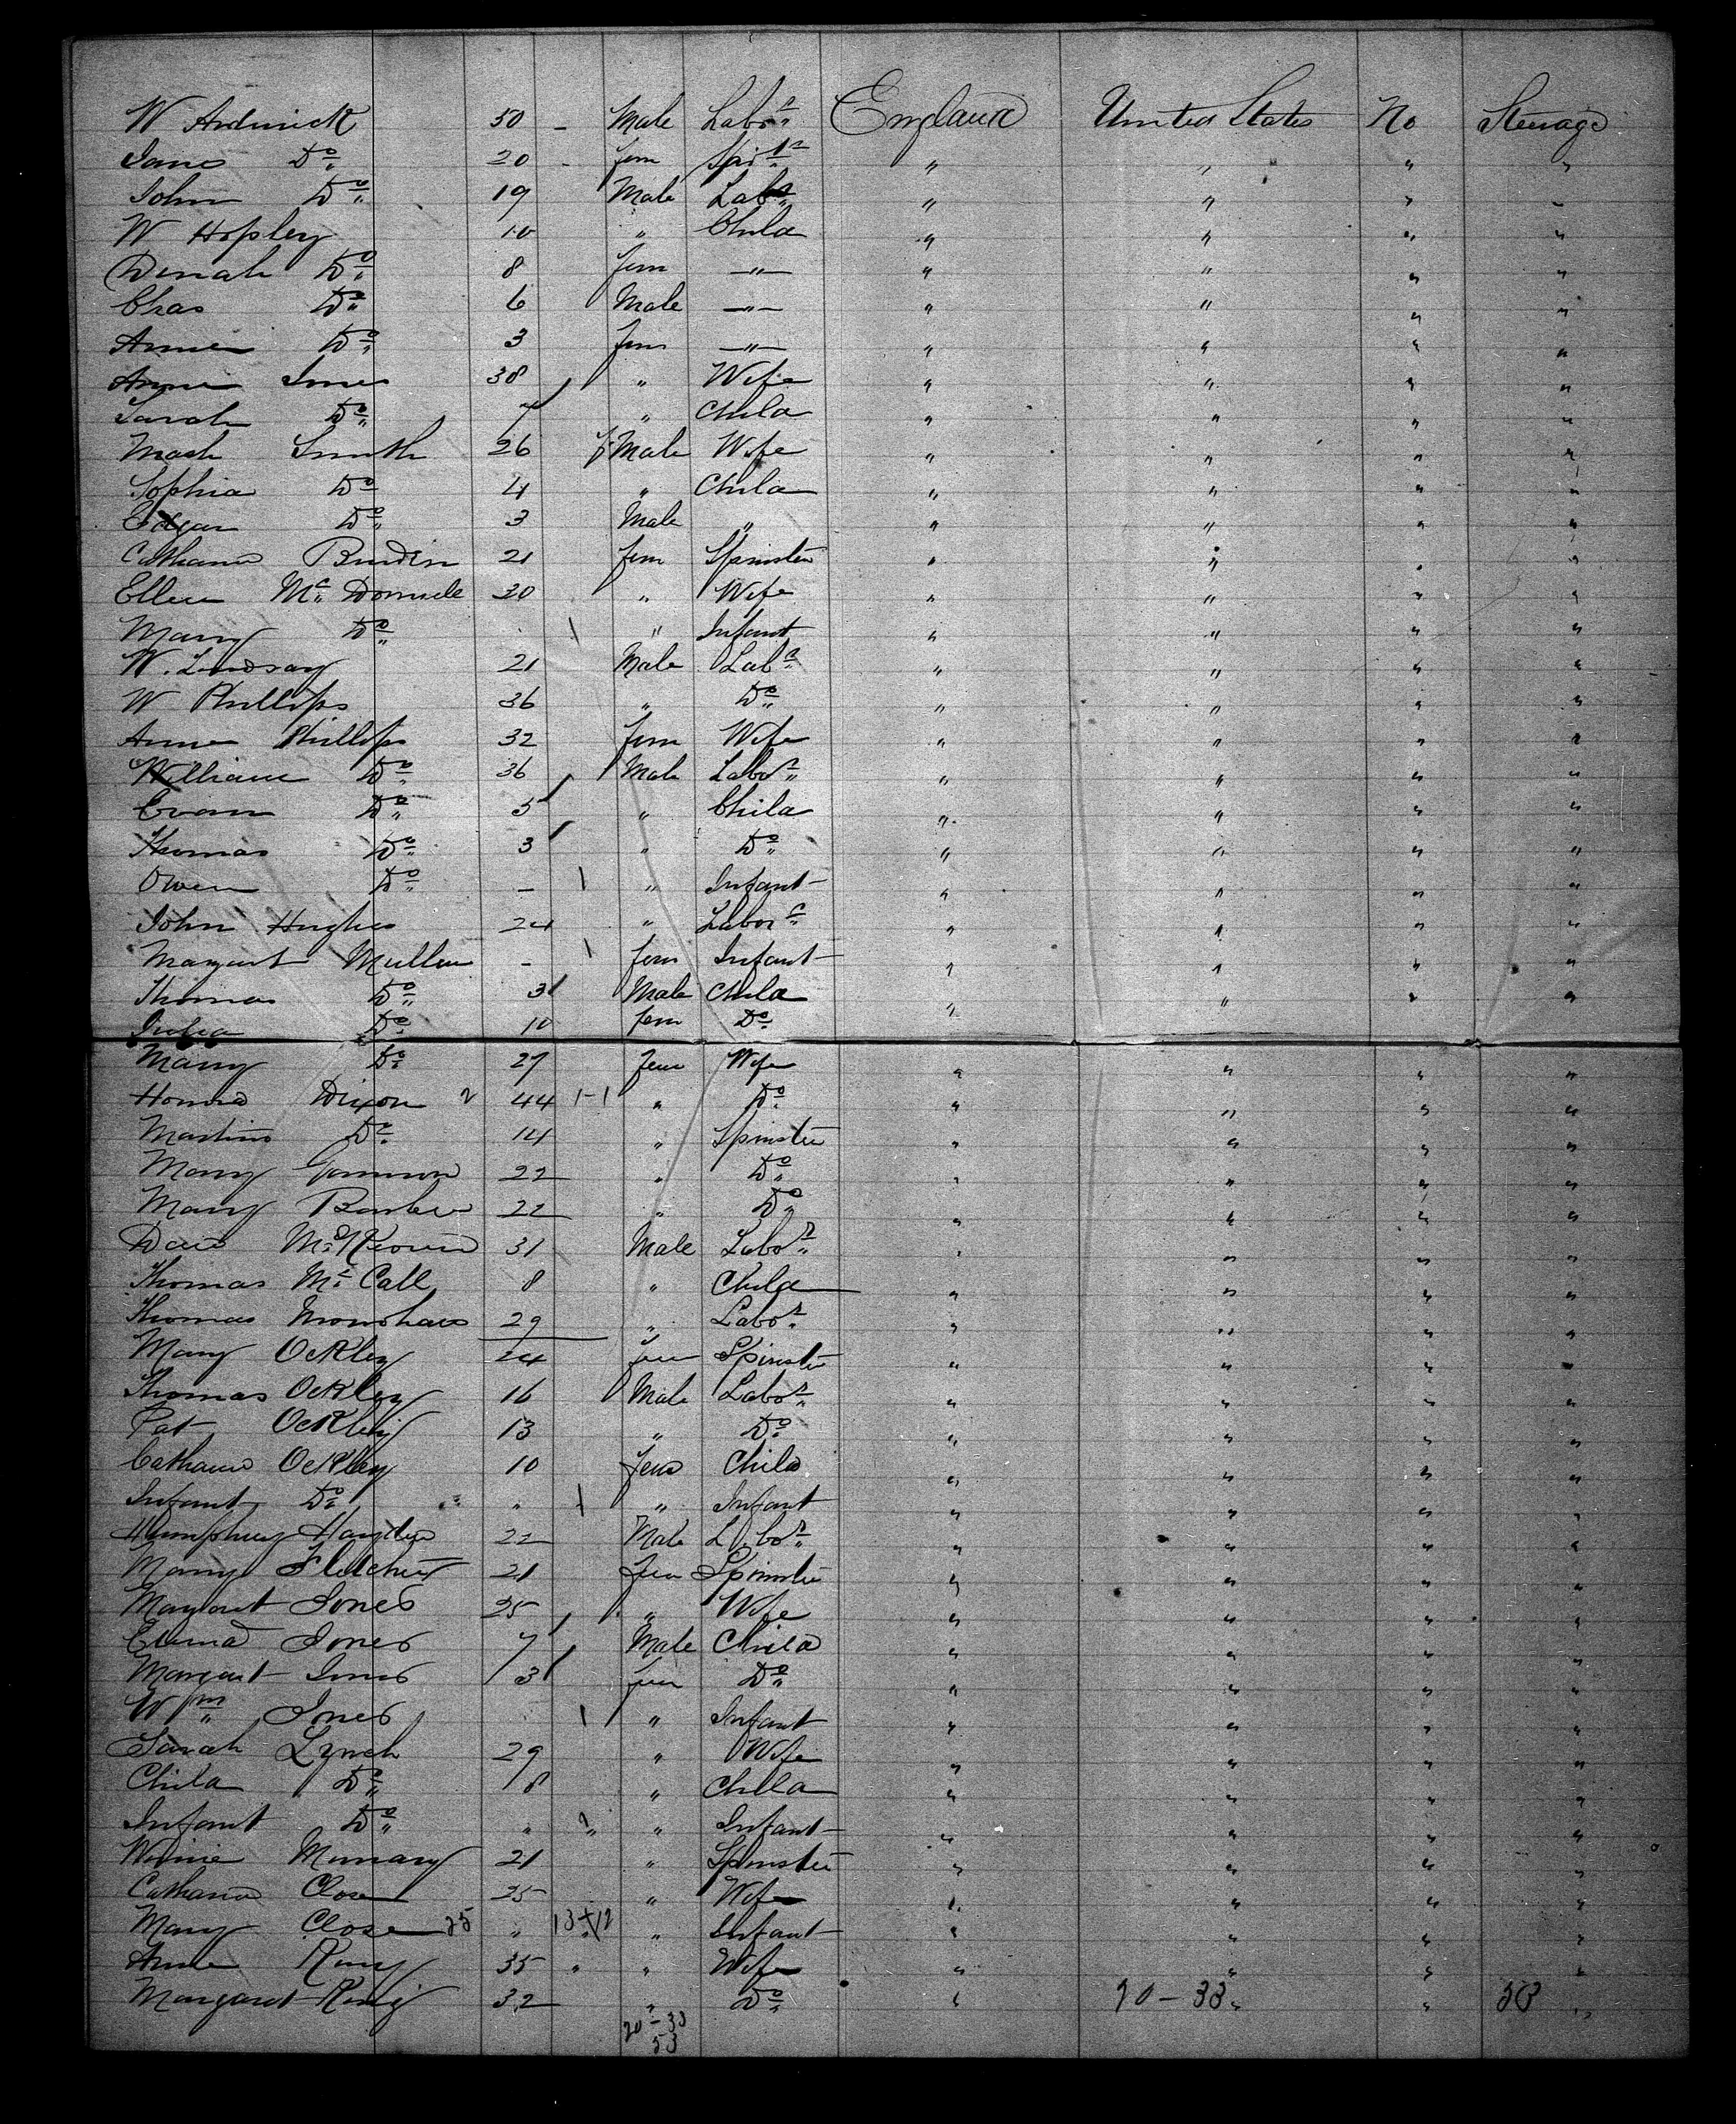 W Ardwick 50 - Male Labor England United States No Steerage
James Do 20 - Fem Spinr " " " "
John Do 19 Male Labr " " " "
W Hopley 10 " Child " " " "
Dinah Do 8 Fem -"- " " " "
Chas Do 6 Male -"- " " " "
Annie Do 3 Fem -"- " " " "
Anne Jones 38 " Wife " " " "
Sarah Do 7 " Child " " " "
Smith 26 F Male Wife " " " "
Sophia Do 4 " Child " " " "
Edgar Do 3 Male " " " " "
Catharine 21 Fem Spinster " " " "
Ellen Mc Donnell 30 " Wife " " " "
Mary Do 1 " Infant " " " "
W. Lindsay 21 Male Labr " " " "
W Phillips 36 " Do " " " "
Anne Phillips 32 Fem Wife " " " "
William Do 36 Male Labor " " " "
Evan Do 5 " Child " " " "
Thomas Do 3 " Do " " " "
Owen Do - 1 " Infant " " " "
John Hughes 24 " Labor " " " "
Margaret Mullen - 1 Fem Infant " " " "
Thomas Do 3 Male Child " " " "
Julia Do 10 Fem Do
Mary Do 27 Fem Wife " " " "
Honora Dixon 2 44 1-1 " Do " " " "
Do 14 " Spinster " " " "
Mary Gannon 22 " Do " " " "
Mary 22 " Do " " " "
Mc Keown 31 Male Labor " " " "
Thomas Mc Call 8 " Child " " " "
Thomas Monahan 29 " Labor " " " "
Mary Ockley 24 Fem Spinster " " " "
Thomas Ockley 16 Male Labor " " " "
Pat Ockley 13 " Do " " " "
Catharine Ockley 10 Fem Child " " " "
Infant Do " 1 " Infant " " " "
Humphrey Hayden 22 Male Labor " " " "
Mary Fletcher 21 Fem Spinster " " " "
Margaret Jones 25 " Wife " " " "
Jones 7 Male Child " " " "
Margaret Jones 3 Fem Do " " " "
Wm Jones 1 " Infant " " " "
Sarah Lynch 29 " Wife " " " "
Child Do 8 " Child " " " "
Infant Do " " " Infant " " " "
Winnie 21 " Spinster " " " "
Catharine Close 25 " Wife " " " "
Mary Close 25 " 13+12 " Infant " " " "
Anne 35 " " Wife " " " "
Margaret King 32 " Do " 20-33 " " 53 "
20-33
53